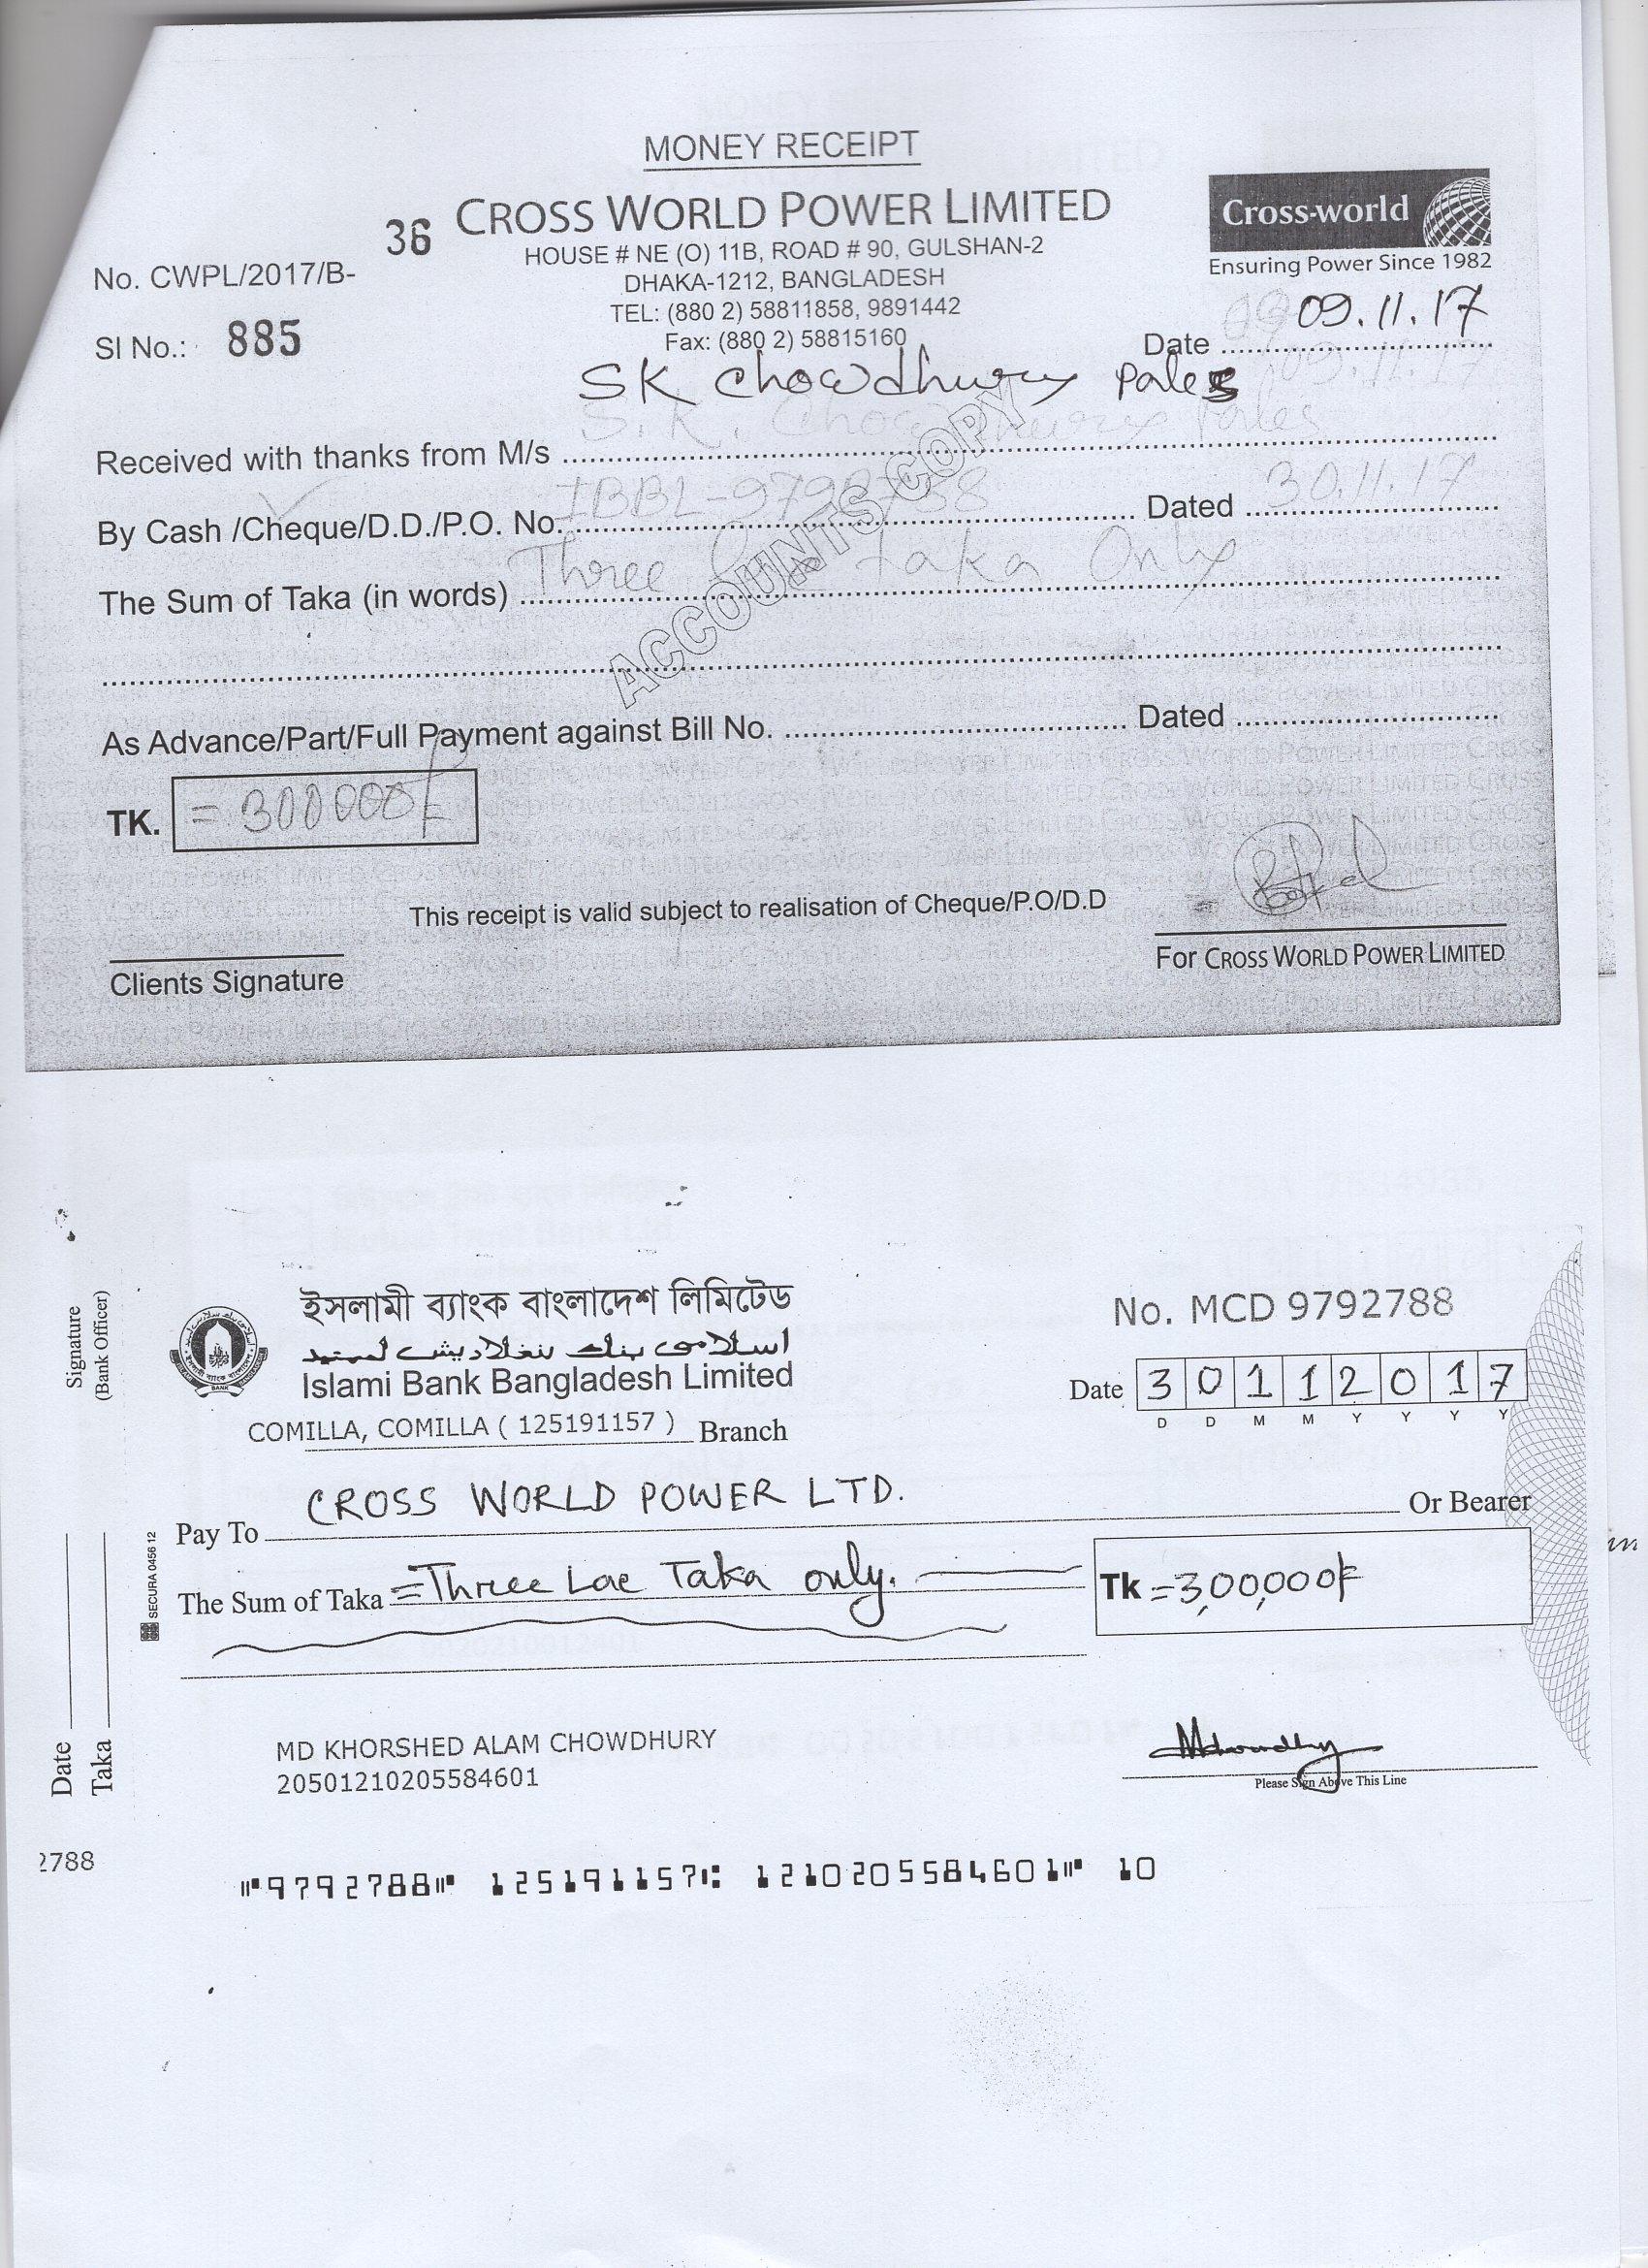 MONEY RECEIPT
36 CROSS WORLD POWER LIMITED
HOUSE # NE (O) 11B, ROAD # 90, GULSHAN-2
DHAKA-1212, BANGLADESH
TEL: (880 2) 58811858, 9891442
Fax: (880 2) 58815160
Cross-world
Ensuring Power Since 1982
No. CWPL/2017/B-
SI No.: 885
Date 09.11.17
09.11.17
SK Chowdhury Pales
S.K. Chowdhury Pales
Received with thanks from M/s
By Cash /Cheque/D.D./P.O. No. IBBL-9792788 Dated 30.11.17
The Sum of Taka (in words) Three Taka Only
ACCOUNTS COPY
As Advance/Part/Full Payment against Bill No. Dated
TK. =300000/-
This receipt is valid subject to realisation of Cheque/P.O/D.D
Clients Signature
For CROSS WORLD POWER LIMITED
Signature
(Bank Officer)
Date
Taka
2788
SECURA 0456 12
ইসলামী ব্যাংক বাংলাদেশ লিমিটেড
اسلامى بنك بنغلاديش لميتيد
Islami Bank Bangladesh Limited
COMILLA, COMILLA ( 125191157 ) Branch
No. MCD 9792788
Date 3 0 1 1 2 0 1 7
D D M M Y Y Y Y
Pay To CROSS WORLD POWER LTD. Or Bearer
The Sum of Taka =Three Lac Taka only.
Tk =3,00,000/-
MD KHORSHED ALAM CHOWDHURY
20501210205584601
Please Sign Above This Line
⑈9792788⑈ 125191157⑆ 1210205584601⑈ 10